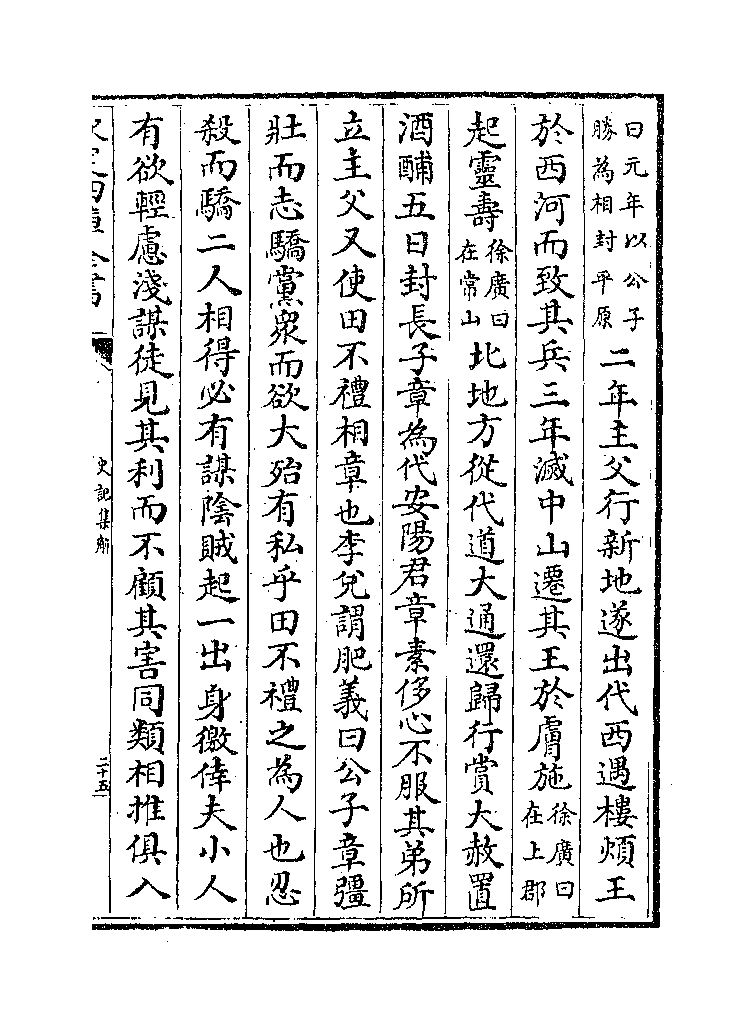 曰元年以公子勝為相封平原二年主父行新地遂出代西遇樓煩王
於西河而致其兵三年滅中山遷其王於膚施徐廣曰在上郡
起靈壽徐廣曰在常山北地方從代道大通還歸行賞大赦置
酒酺五日封長子章為代安陽君章素侈心不服其弟所
立主父又使田不禮相章也李兌謂肥義曰公子章彊
壯而志驕黨衆而欲大殆有私乎田不禮之為人也忍
殺而驕二人相得必有謀陰賊起一出身徼倖夫小人
有欲輕慮淺謀徒見其利而不顧其害同類相推俱入
史記集解
二十五